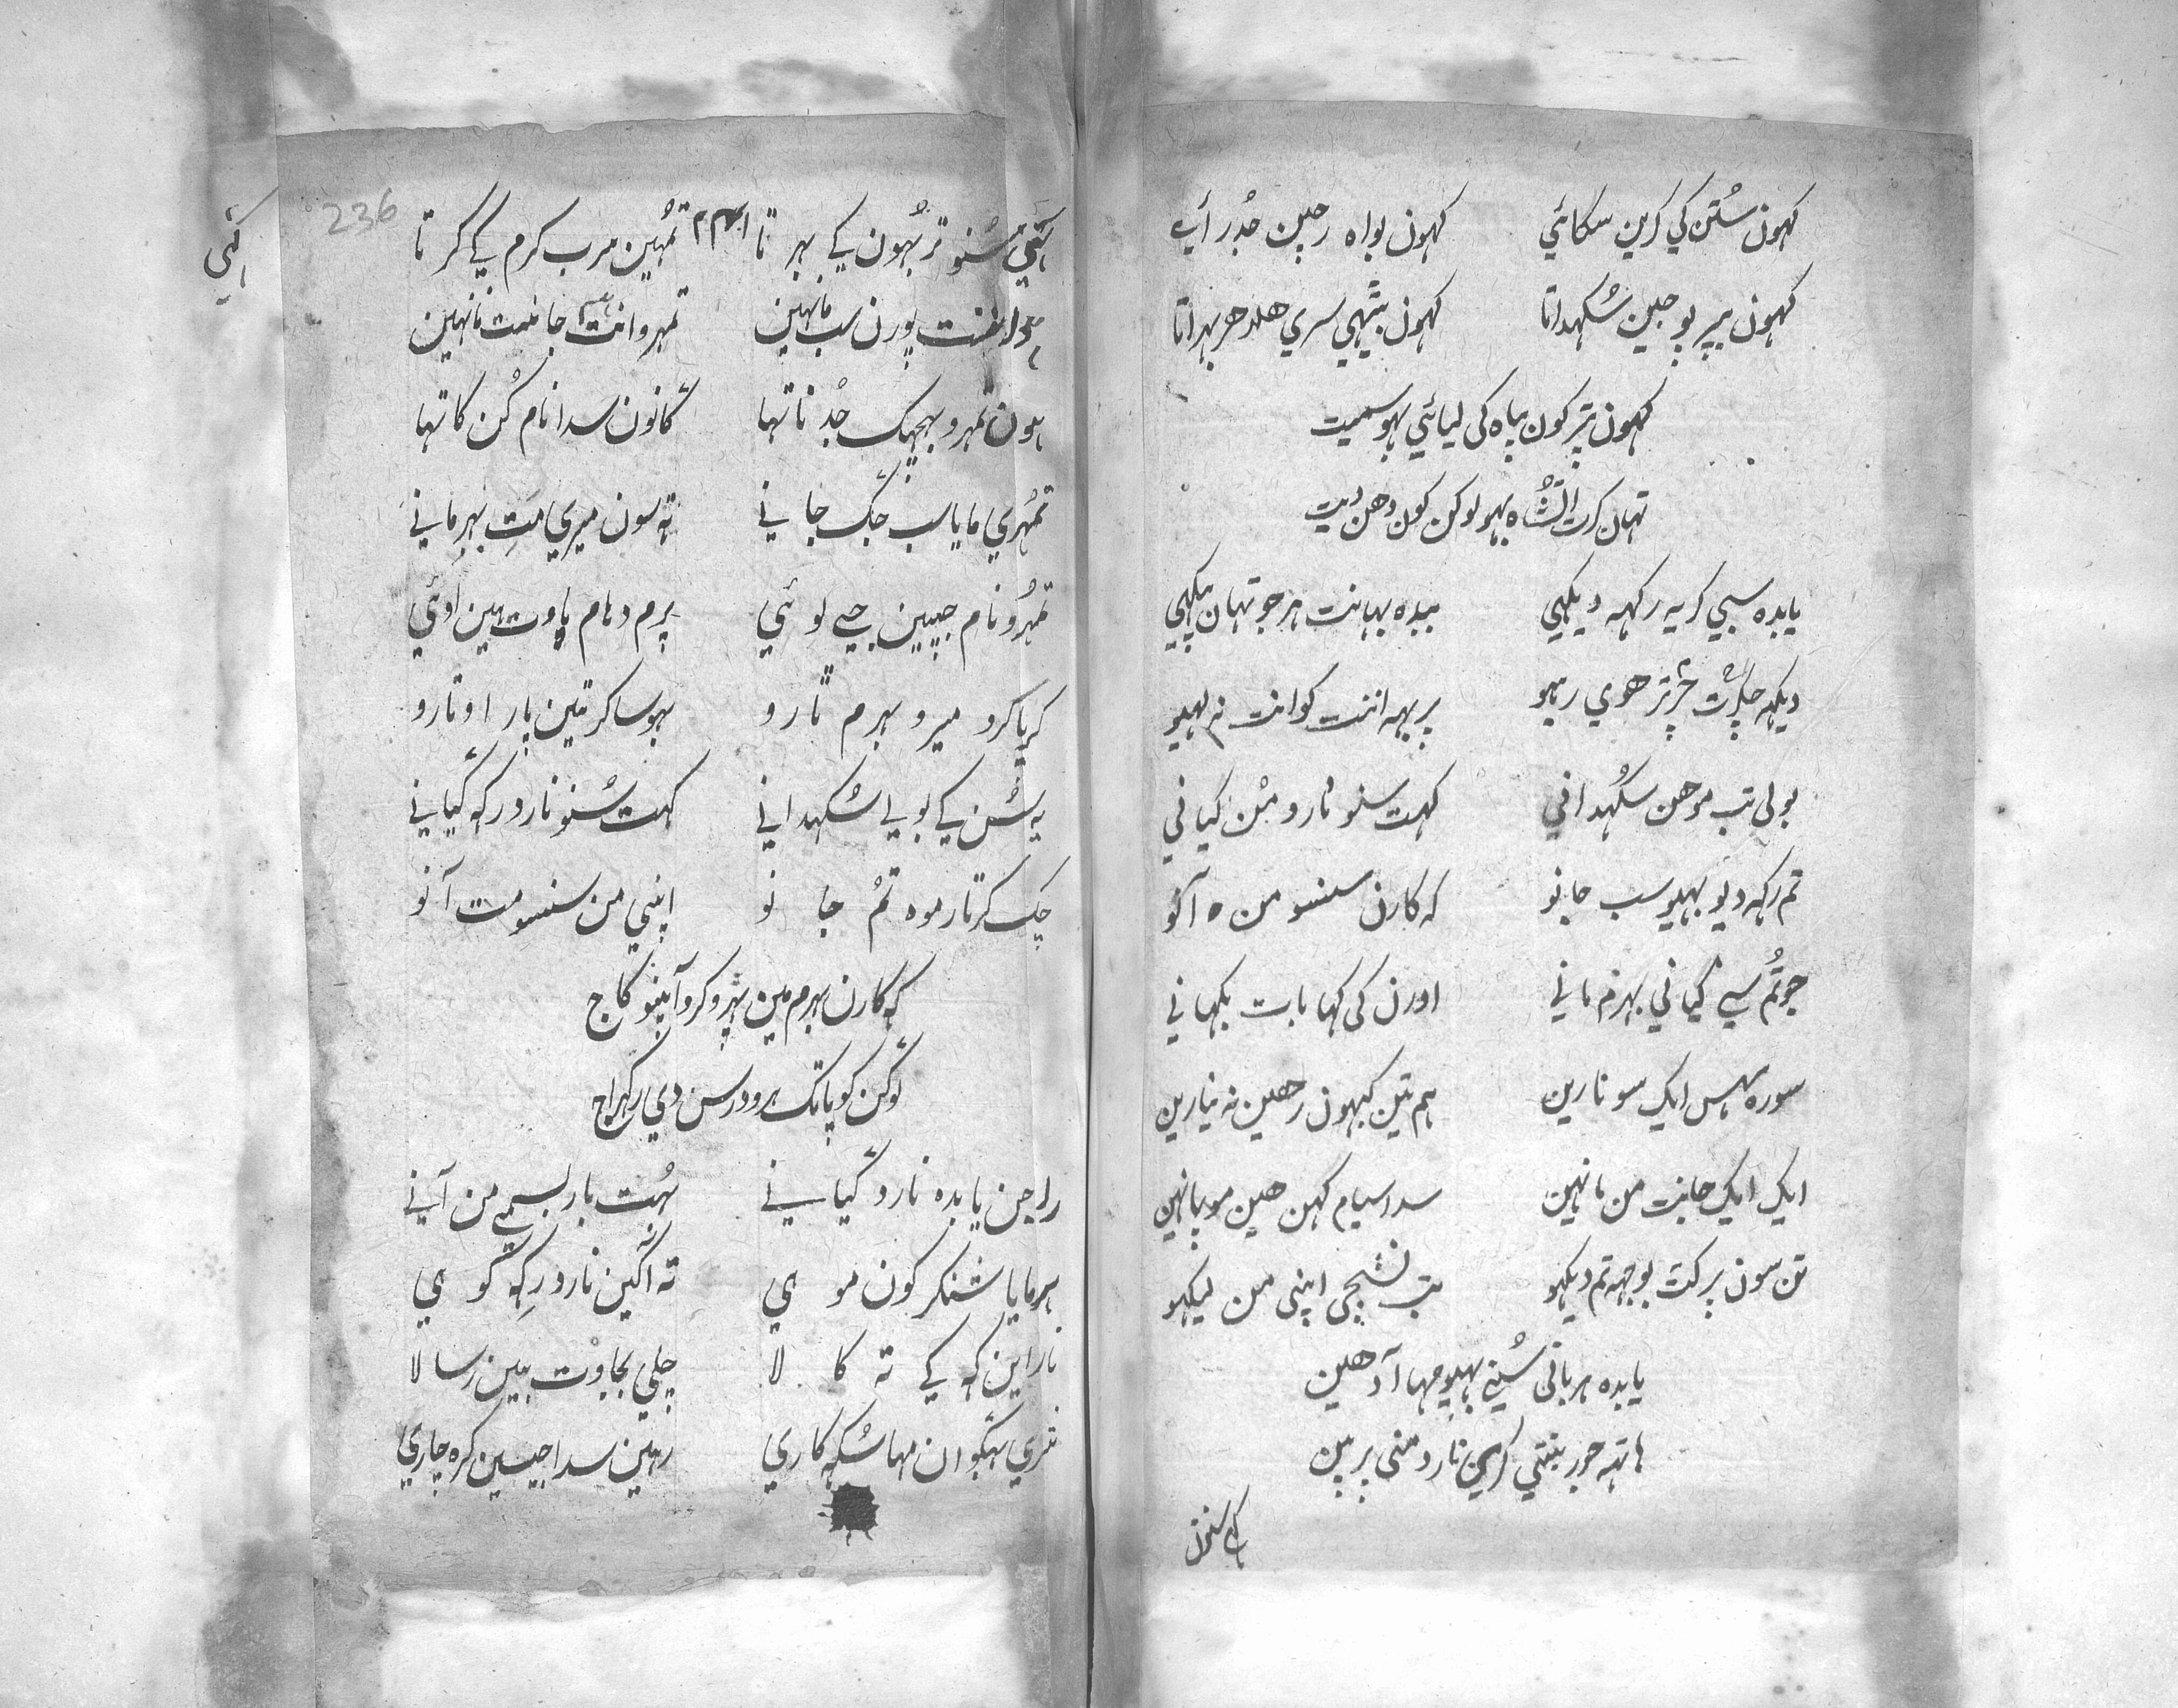 کہون سُتن کي کرین سکائي کہون بواہ رچین جدُرائے
کہون بپر پوجین سُکہداتا کہون بیٹہي سري هلدهر بہراتا
کہون پتر کون بیاہ کی لیائي بہو سمیت
تہان کرت اتشاہ بہو لوکن کون دهن دیت
یابدہ سبي کریہ رکہہ دیکہي ببدہ بہانت هر جو تہان پیکہي
دیکہ چکرت چرتر هوي رہیو پربہہ اننت کو انت نہ لہیو
بولی تب موهن سکُہداني کہت سنو نارد مُن کیاني
تم رکہہ دیو بہیو سب جانو کہ کارن سنسو من آنو
جو تُم سے گیاني بہرم مانے اورن کی کہا بات بکہانے
سورہ سہس ایک سو نارین ہم تین کبہون رهین نہ نیارین
ایک ایک جانت من مانہین سدا سیام کہن هین مو پانہین
تن سون پرکت بوجہہ تم دیکہو تب نشچی اپنی من لیکہو
یابدہ هر بانی سُنے بہیو مہا آدهین
ہاتہہ جور بنتي کرین نارد منی پربین
236
تمُہین سرب کرم کے کرتا
تمہرو انت جانت نانہین
ہون تمہرو بہچہک جدُناتہا گانون سدا نام گن کاتہا
تمُہري مایا سب جگ جانے تہ سون میري مت بہرمانے
تمہرُو نام جپین جے لوئي پرم دہام پاوت ہین اوئي
کرپا کرو میرو بہرم ٹارو بہو ساکر تین پار اوتارو
یہ سُن کے بولے سُکہدانے کہت سُنو نارد رکہ گیانے
جگ کرتار موہ تمُ جانو اپنے من سنسو مت آنو
کہ کارن بہرم مین پہرو کرو آپنو کاج
لوگن کو پاتک ہرو درسن دي رکہراج
راجن یابدہ نارد گیانے بہُت بار بسمے من آنے
ہر مایا شنکر کون موہي تہ آگین نارد رکہ کو ہي
ناراین کہ کے تہ کالا چلے بجاوت بین رسالا
شري بہگوان مہا سُکہکاري رہین سدا جیسین کرہ چاري